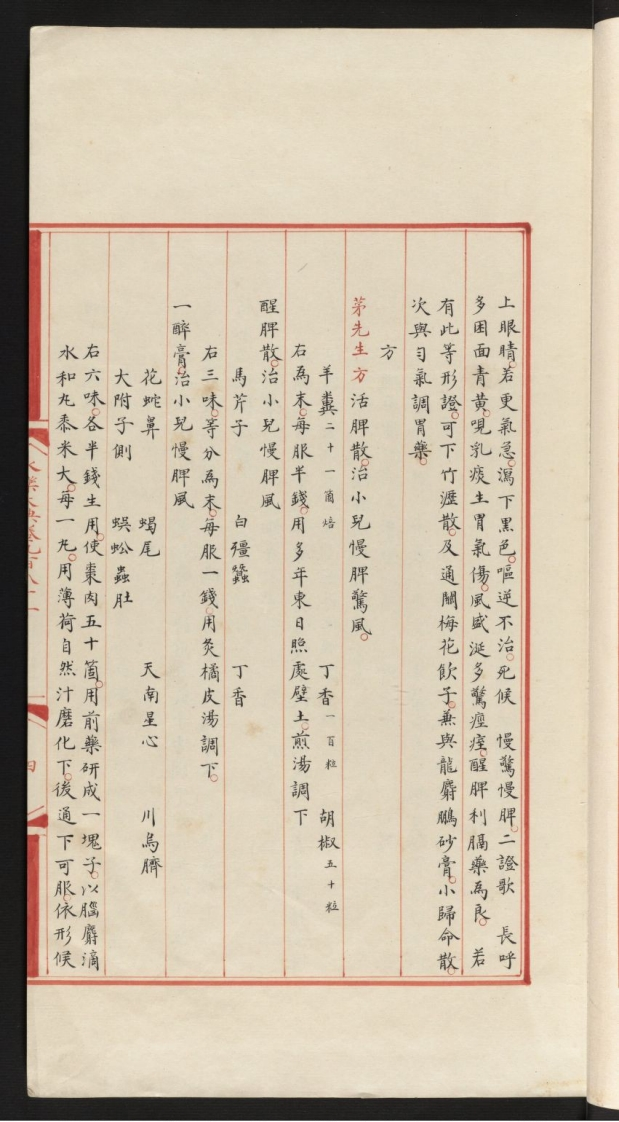 上眼睛。若更氣急。瀉下黑色。嘔逆不治。死候　慢驚慢脾。二證歌　長呼
多困面青黃。哯乳痰生胃氣傷。風盛涎多驚瘂痓。醒脾利膈藥為良。　若
有此等形證。可下竹瀝散。及通關梅花飲子。兼與龍麝鵬砂膏。小歸命散。
次與勻氣調胃藥。
方
茅先生方活脾散。治小兒慢脾驚風。
羊糞二十一箇焙　丁香一百粒　胡椒五十粒
右為末。每服半錢。用多年東日照處壁土。煎湯調下
醒脾散。治小兒慢脾風
馬芹子　白殭蠶　丁香
右三味。等分為末。每服一錢。用炙橘皮湯調下。
一醉膏。治小兒慢脾風
花蛇鼻　蝎尾　天南星心　川烏臍
大附子側　蜈蚣蟲肚
右六味。各半錢生用。使棗肉五十箇。用前藥研成一塊子。以腦麝滴
水和丸黍米大。每一丸。用薄荷自然汁磨化下。後通下可服。依形候
四